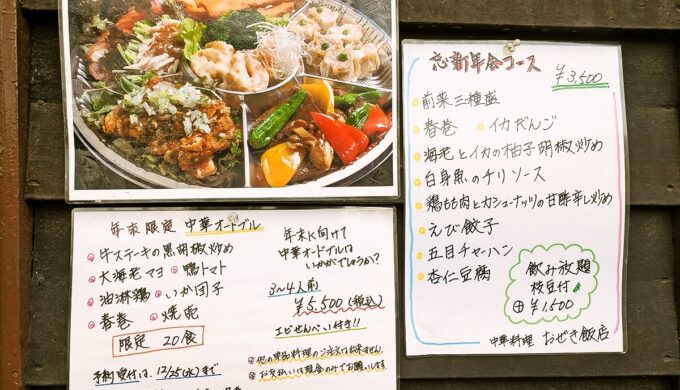 忘新年会コース
¥3,500
前菜三種盛
春巻 イカだんご
海老とイカの柚子胡椒炒め
白身魚のチリソース
鶏もも肉とカシューナッツの甘酢辛し炒め
えび餃子
五目チャーハン
杏仁豆腐
飲み放題
枝豆付
⊕ ¥1,500
中華料理 おぜき飯店
年末限定 中華オードブル
牛ステーキの黒胡椒炒め
大海老マヨ 鴨トマト
油淋鶏 いか団子
春巻 焼売
限定 20食
予約受付は、12/25(水)まで
年末に向けて
中華オードブルは
いかがでしょうか?
3~4人前
¥5,500(税込)
エビせんべい付き!!
他の単品料理のご注文は出来ません
お支払いは現金のみでお願いします